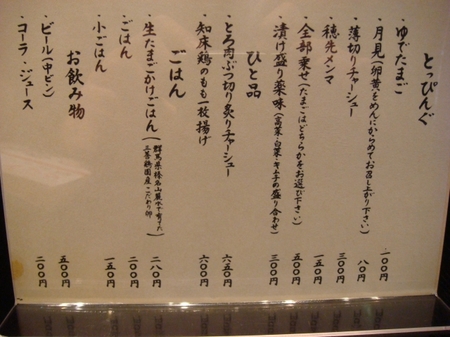 とっぴんぐ
・ゆでたまご 一〇〇円
・月見(卵黄をめんにからめてお召し上がり下さい) 八〇円
・薄切りチャーシュー 三〇〇円
・穂先メンマ 一五〇円
・全部乗せ(たまごはどちらかをお選び下さい) 五〇〇円
・漬け盛り薬味(高菜・白菜・キムチの盛り合わせ) 三〇〇円
ひと品
・とろ肉ぶつ切り炙りチャーシュー 六五〇円
・知床鶏のもも一枚揚げ 六〇〇円
ごはん
・生たまごかけごはん(群馬県榛名山麓水で育てた 二八〇円
三喜鶏国産こだわり卵)
・ごはん 二〇〇円
・小ごはん 一五〇円
お飲み物
・ビール(中ビン) 五〇〇円
・コーラ・ジュース 二〇〇円